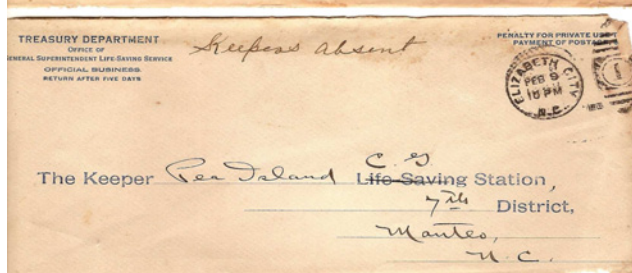 TREASURY DEPARTMENT
OFFICE OF
GENERAL SUPERINTENDENT LIFE-SAVING SERVICE
OFFICIAL BUSINESS.
RETURN AFTER FIVE DAYS
Keepers absent
PENALTY FOR PRIVATE
PAYMENT OF
ELIZABETH CITY
FEB 9
10 PM
N.C.
1
C. G.
The Keeper Pea Island Life-Saving Station,
7th District,
Manteo,
N. C.